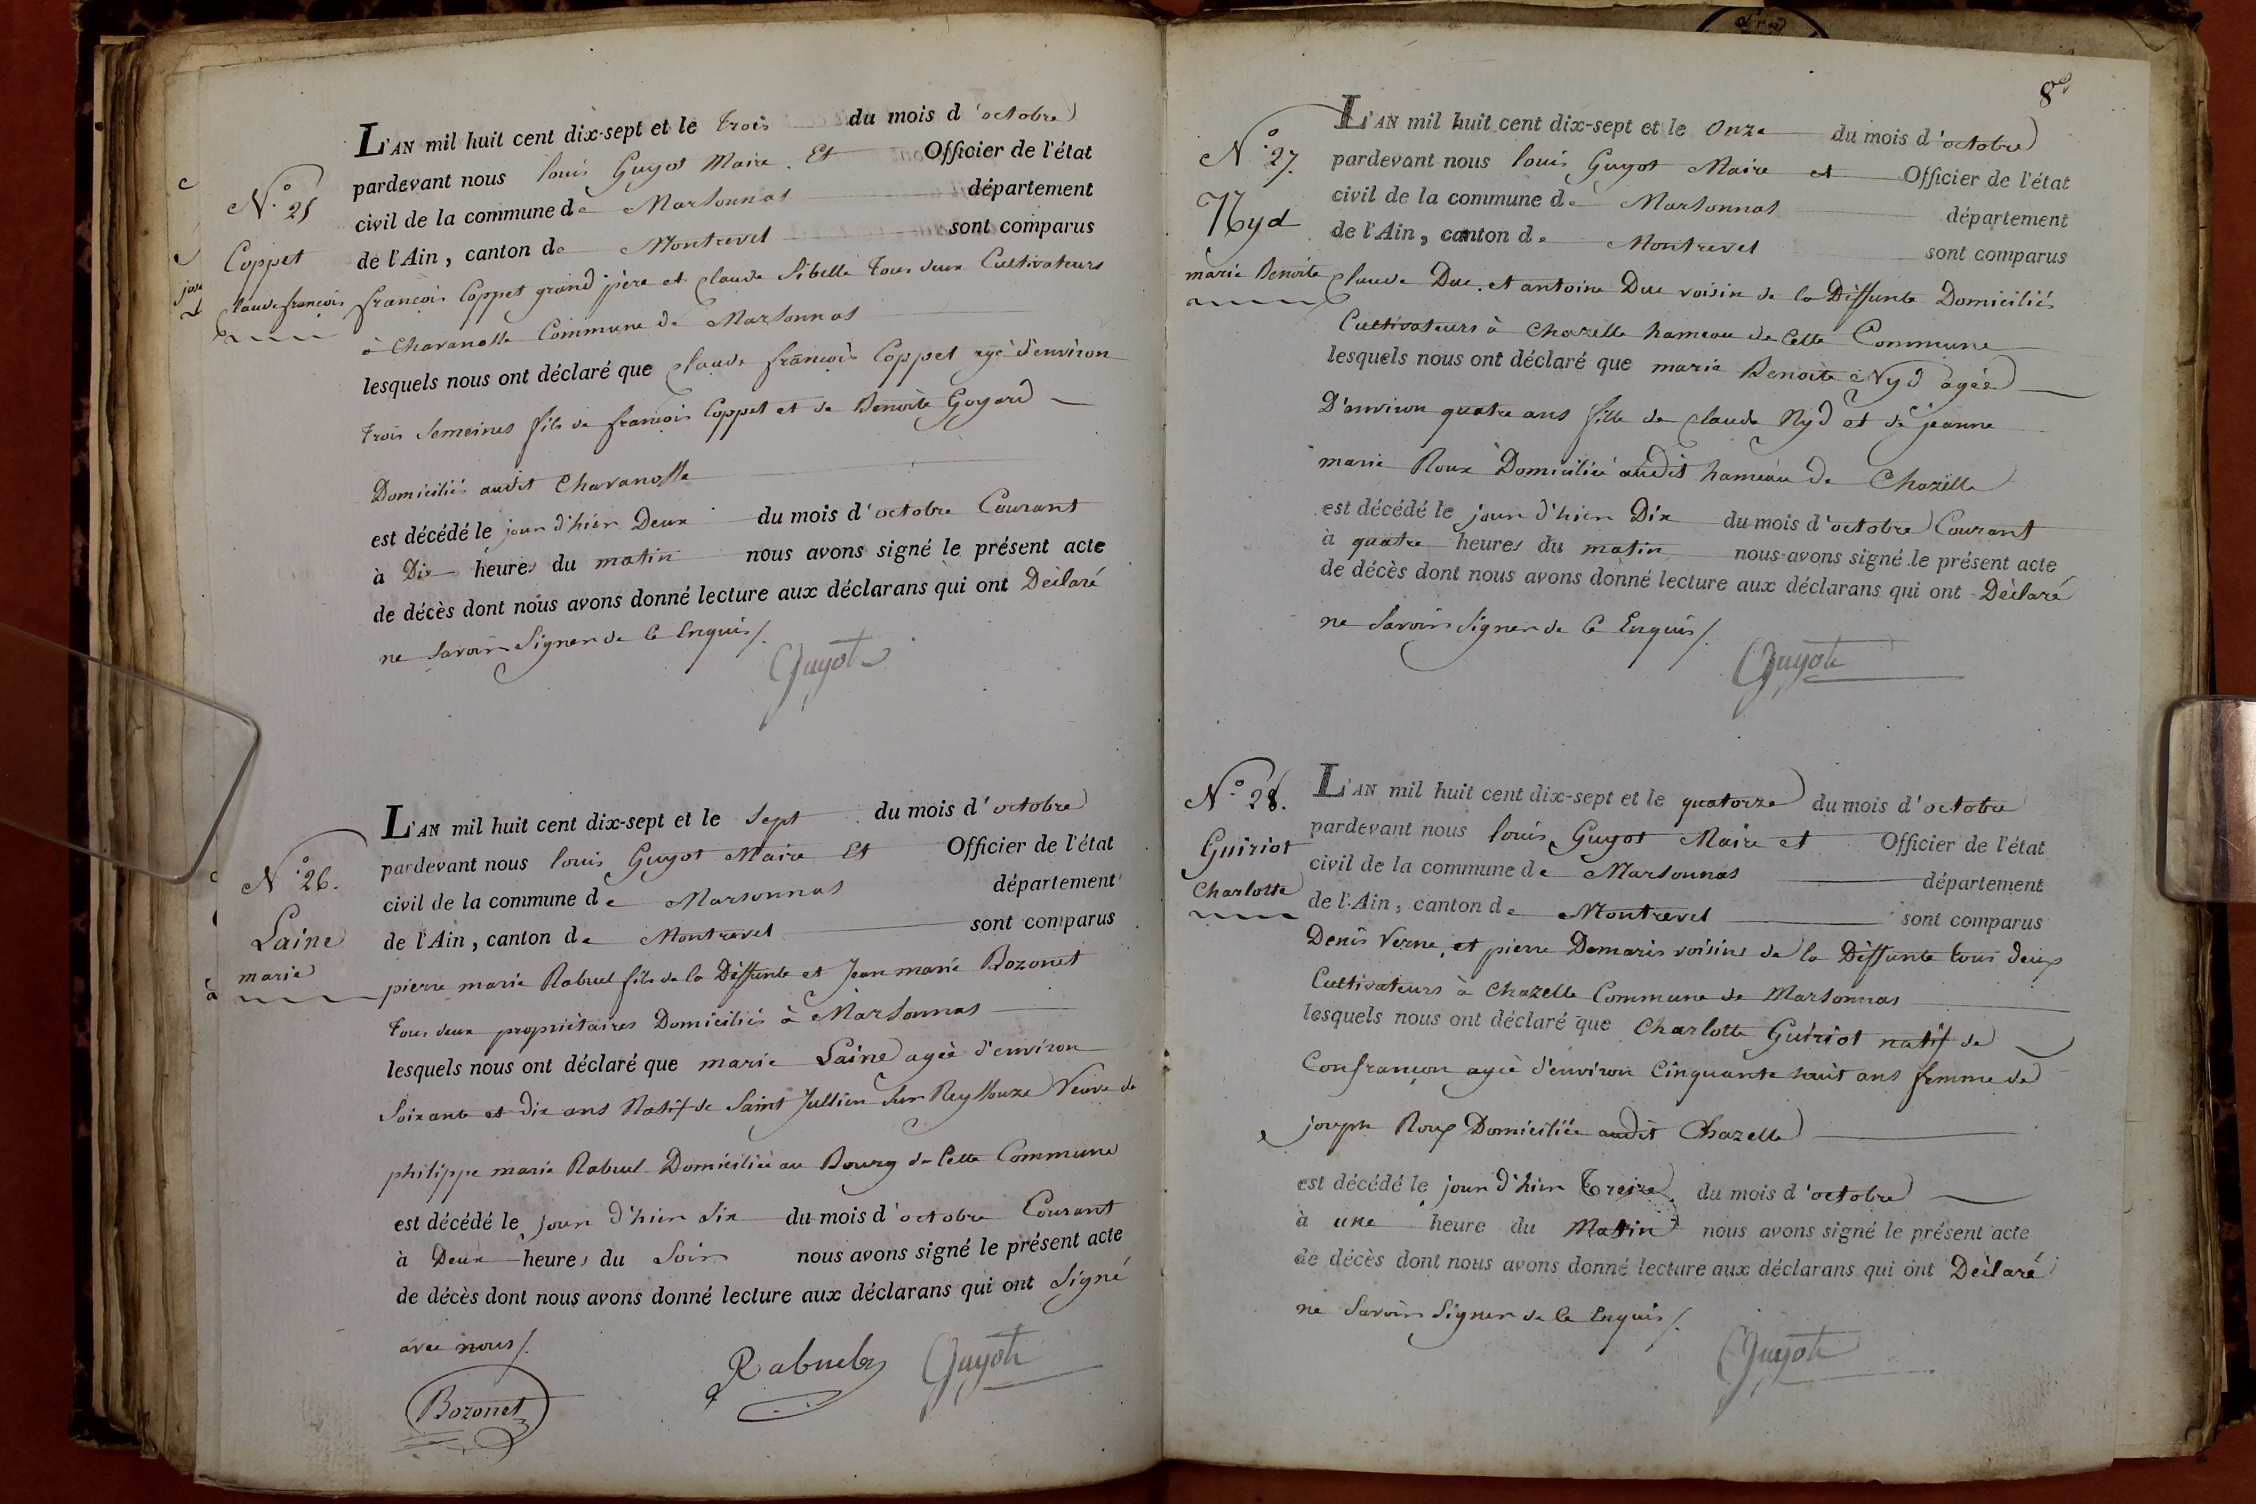 N.° 25
Coppet
Claude françois
L'AN mil huit cent dix-sept et le trois du mois d'octobre
pardevant nous louis Guyot Maire Et Officier de l'état
civil de la commune de Marsonnas département
de l'Ain, canton de Montrevel sont comparus
françois Coppet grand père et Claude Sibelle tous deux Cultivateurs
à Chavanosse Commune de Marsonnas
lesquels nous ont déclaré que Claude françois Coppet agé d'environ
trois Semeines fils de françois Coppet et de Benoite Goyard
Domiciliés audit Chavanosse
est décédé le jour d'hier Deux du mois d'octobre Courant
à Dix heures du matin nous avons signé le présent acte
de décès dont nous avons donné lecture aux déclarans qui ont Déclaré
ne Savoir Signer de Ce Enquis /.
Guyot
N.° 26.
Laine
marie
L'AN mil huit cent dix-sept et le Sept du mois d'octobre
pardevant nous louis Guyot Maire Et Officier de l'état
civil de la commune de Marsonnas département
de l'Ain, canton de Montrevel sont comparus
pierre marie Rabuel fils de la Déffunte et Jean marie Bozonet
tous deux propriétaires Domiciliés à Marsonnas
lesquels nous ont déclaré que marie Laine agée d'environ
Soixante et dix ans Natif de Saint Jullien Sur Reyssouze Veuve de
philippe marie Rabuel Domiciliée au Bourg de Cette Commune
est décédé le jour d'hier Six du mois d'octobre Courant
à Deux heures du Soir nous avons signé le présent acte
de décès dont nous avons donné lecture aux déclarans qui ont Signé
avec nous /.
Bozonet Rabuel Guyot
8
N.° 27.
Nyd
marie Benoite
L'AN mil huit cent dix-sept et le Onze du mois d'octobre
pardevant nous louis Guyot Maire et Officier de l'état
civil de la commune de Marsonnas département
de l'Ain, canton de Montrevel sont comparus
Claude Duc et antoine Duc voisin de la Déffunte Domiciliés
Cultivateurs à Chazelle hameau de Cette Commune
lesquels nous ont déclaré que marie Benoite Nyd agée
D'environ quatre ans fille de Claude Nyd et de jeanne
marie Roux Domiciliée audit hameau de Chazelle
est décédé le jour d'hier Dix du mois d'octobre Courant
à quatre heures du matin nous avons signé le présent acte
de décès dont nous avons donné lecture aux déclarans qui ont Déclaré
ne Savoir Signer de Ce Enquis /.
Guyot
N.° 28.
Guiriot
Charlotte
L'AN mil huit cent dix-sept et le quatorze du mois d'octobre
pardevant nous louis Guyot Maire et Officier de l'état
civil de la commune de Marsonnas département
de l'Ain, canton de Montrevel sont comparus
Denis Verne et pierre Demaris voisins de la Déffunte tous deux
Cultivateurs à Chazelle Commune de Marsonnas
lesquels nous ont déclaré que Charlotte Guiriot natif de
Confrançon agée d'environ Cinquante huit ans femme de
joseph Roux Domiciliée audit Chazelle
est décédé le jour d'hier Treize du mois d'octobre
à une heure du Matin nous avons signé le présent acte
de décès dont nous avons donné lecture aux déclarans qui ont Déclaré
ne Savoir Signer de Ce Enquis /.
Guyot